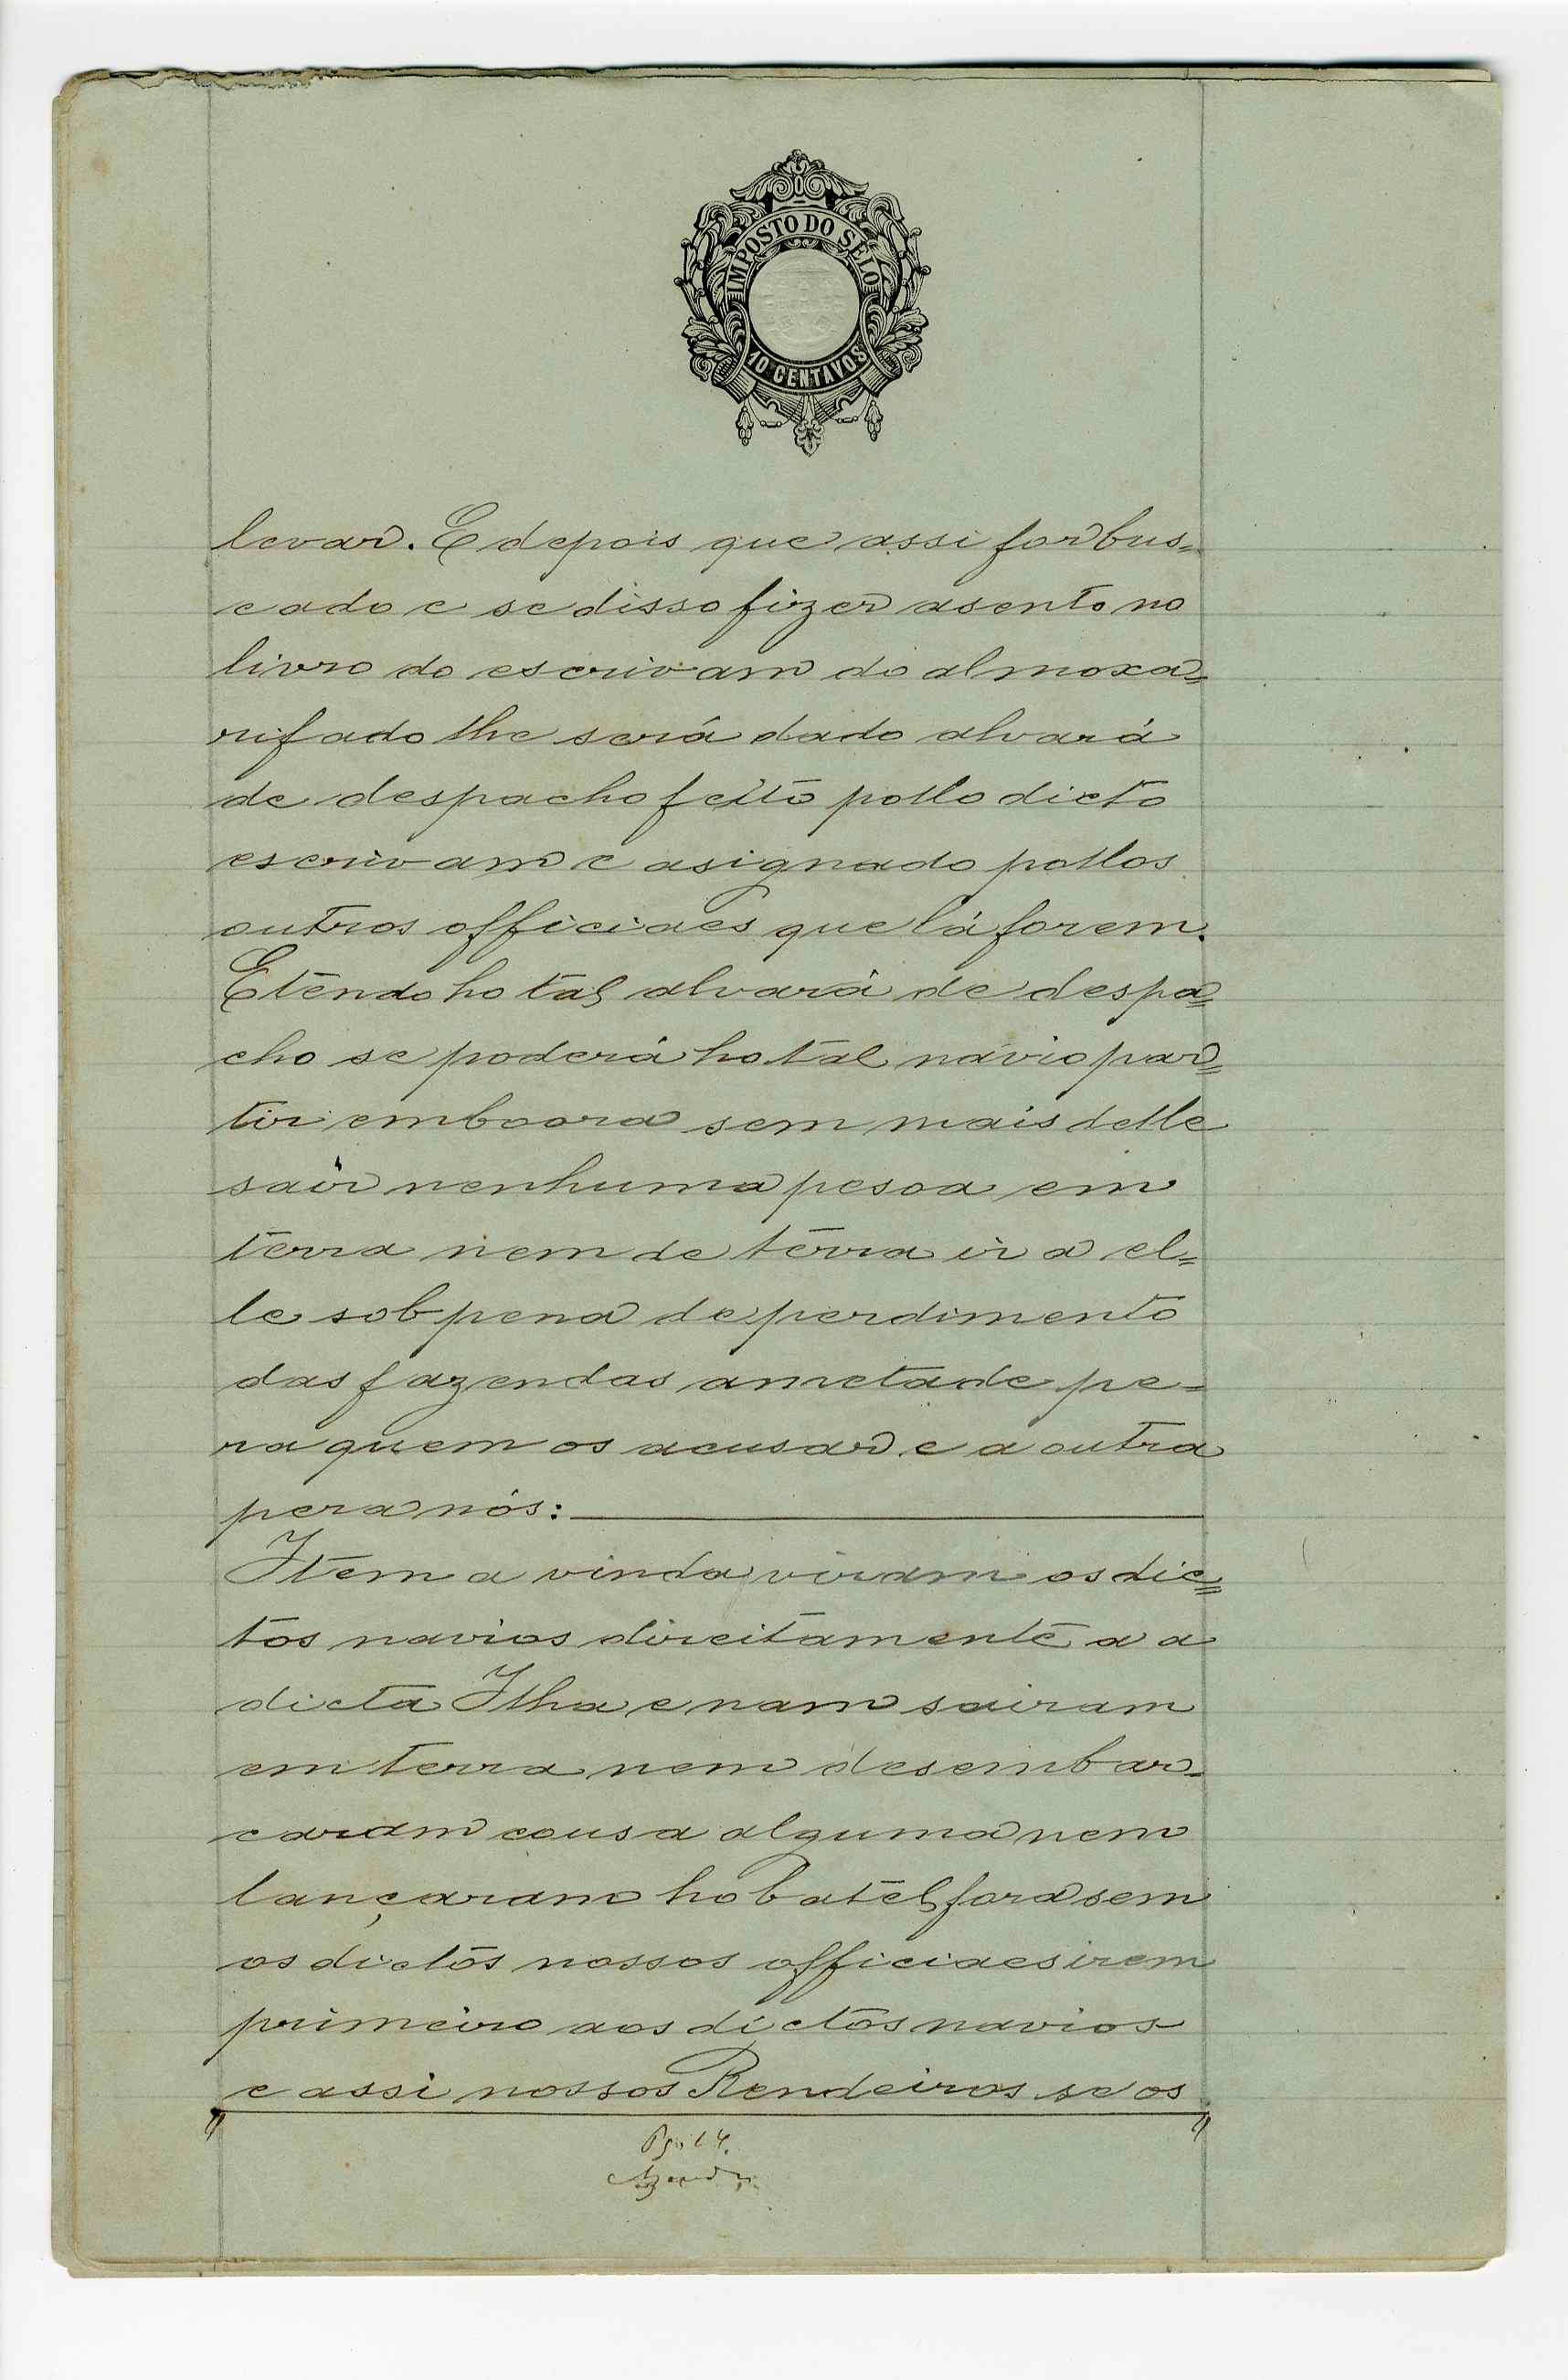 IMPOSTO DO SELO
10 CENTAVOS
levar. E depois que assi for bus=
cado e se disso fizer asento no
livro do escrivam do almoxa=
rifado lhe será dado alvará
de despacho feito pollo dicto
escrivam e asignado pollos
outros officiaes que lá forem.
E tendo ho tal alvará de despa=
cho se poderá ho tal návio par=
tir emboora sem mais delle
sair nenhuma pesoa em
terra nem de terra ir a el=
le sob pena de perdimento
das fazendas ametade pe=
ra quem os acusar e a outra
pera nós:
Item a vinda viram os dic=
tos navios direitamente a a
dicta Ilha e nam sairam
em terra nem desembar=
caram cousa alguma nem
lançaram ho batel fora sem
os dictos nossos officiaes irem
primeiro aos dictos navios
e assi nossos Rendeiros se os